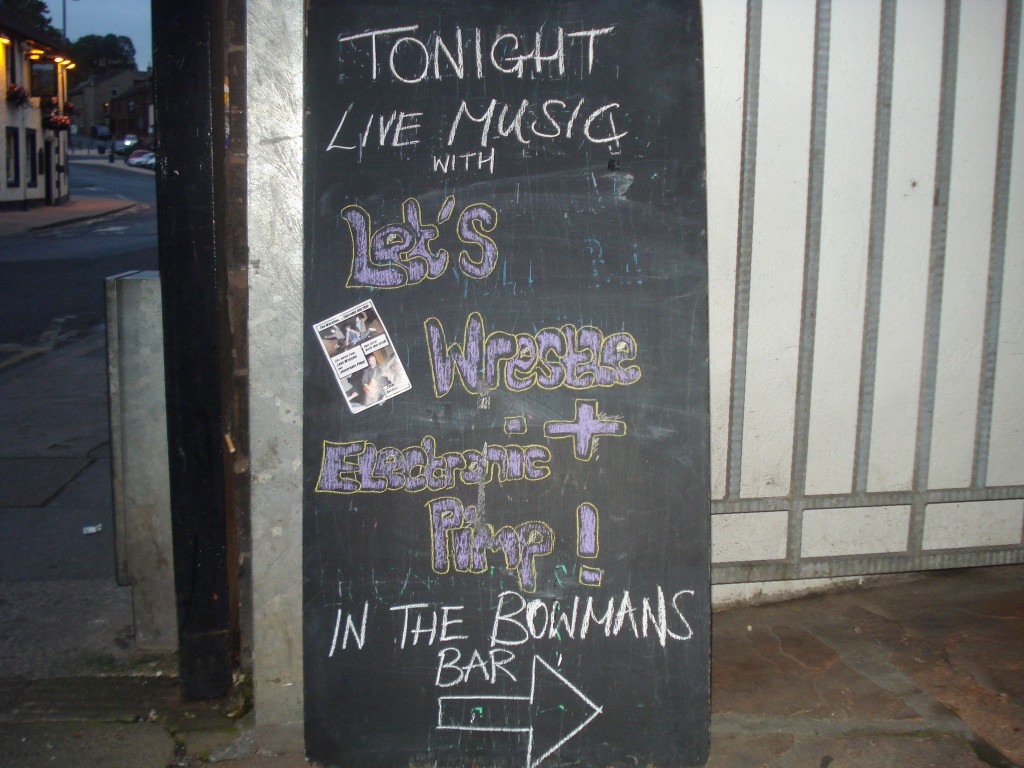 TONIGHT
LIVE MUSIC
WITH
Let's
Wrestle
+
Electronic
Pimp!
IN THE BOWMANS
BAR